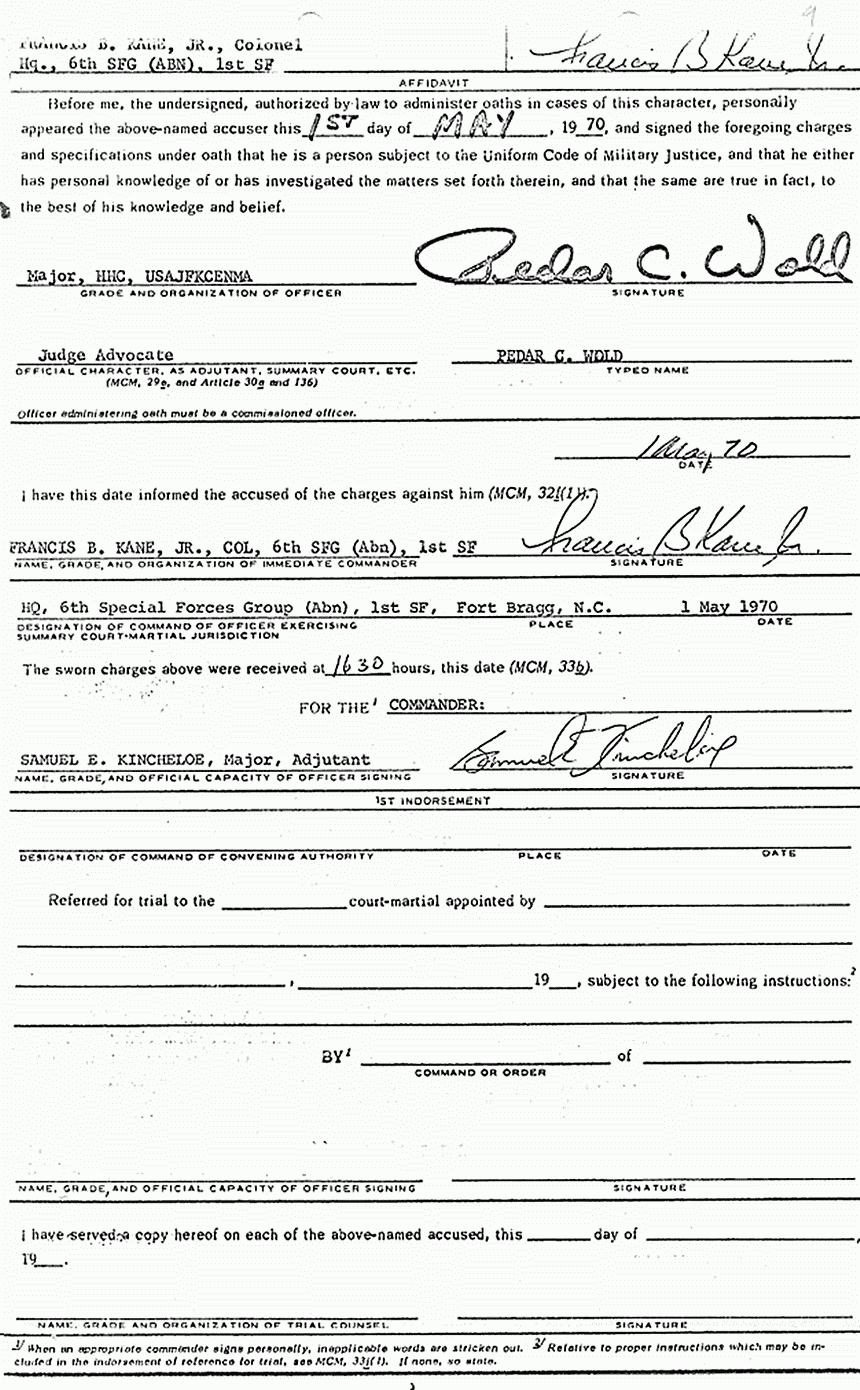 9
FRANCIS B. KANE, JR., Colonel
Hq., 6th SFG (ABN), 1st SF Francis B Kane Jr.
AFFIDAVIT
Before me, the undersigned, authorized by law to administer oaths in cases of this character, personally
appeared the above-named accuser this 1ST day of MAY, 19 70, and signed the foregoing charges
and specifications under oath that he is a person subject to the Uniform Code of Military Justice, and that he either
has personal knowledge of or has investigated the matters set forth therein, and that the same are true in fact, to
the best of his knowledge and belief.
Major, HHC, USAJFKCENMA Pedar C. Wold
GRADE AND ORGANIZATION OF OFFICER SIGNATURE
Judge Advocate PEDAR C. WOLD
OFFICIAL CHARACTER, AS ADJUTANT, SUMMARY COURT, ETC. TYPED NAME
(MCM, 29e, and Article 30a and 136)
Officer administering oath must be a commissioned officer.
1 May 70
DATE
I have this date informed the accused of the charges against him (MCM, 32f(1)).
FRANCIS B. KANE, JR., COL, 6th SFG (Abn), 1st SF Francis B Kane Jr.
NAME, GRADE, AND ORGANIZATION OF IMMEDIATE COMMANDER SIGNATURE
HQ, 6th Special Forces Group (Abn), 1st SF, Fort Bragg, N.C. 1 May 1970
DESIGNATION OF COMMAND OF OFFICER EXERCISING PLACE DATE
SUMMARY COURT-MARTIAL JURISDICTION
The sworn charges above were received at 1630 hours, this date (MCM, 33b).
FOR THE¹ COMMANDER:
SAMUEL E. KINCHELOE, Major, Adjutant Samuel E Kincheloe
NAME, GRADE, AND OFFICIAL CAPACITY OF OFFICER SIGNING SIGNATURE
1ST INDORSEMENT
DESIGNATION OF COMMAND OF CONVENING AUTHORITY PLACE DATE
Referred for trial to the ______ court-martial appointed by ______
______, ______ 19__, subject to the following instructions:²
BY¹ ______ of ______
COMMAND OR ORDER
NAME, GRADE, AND OFFICIAL CAPACITY OF OFFICER SIGNING SIGNATURE
I have served a copy hereof on each of the above-named accused, this ______ day of ______,
19__.
NAME, GRADE AND ORGANIZATION OF TRIAL COUNSEL SIGNATURE
1/ When an appropriate commander signs personally, inapplicable words are stricken out. 2/ Relative to proper instructions which may be in-
cluded in the indorsement of reference for trial, see MCM, 33j(1). If none, so state.